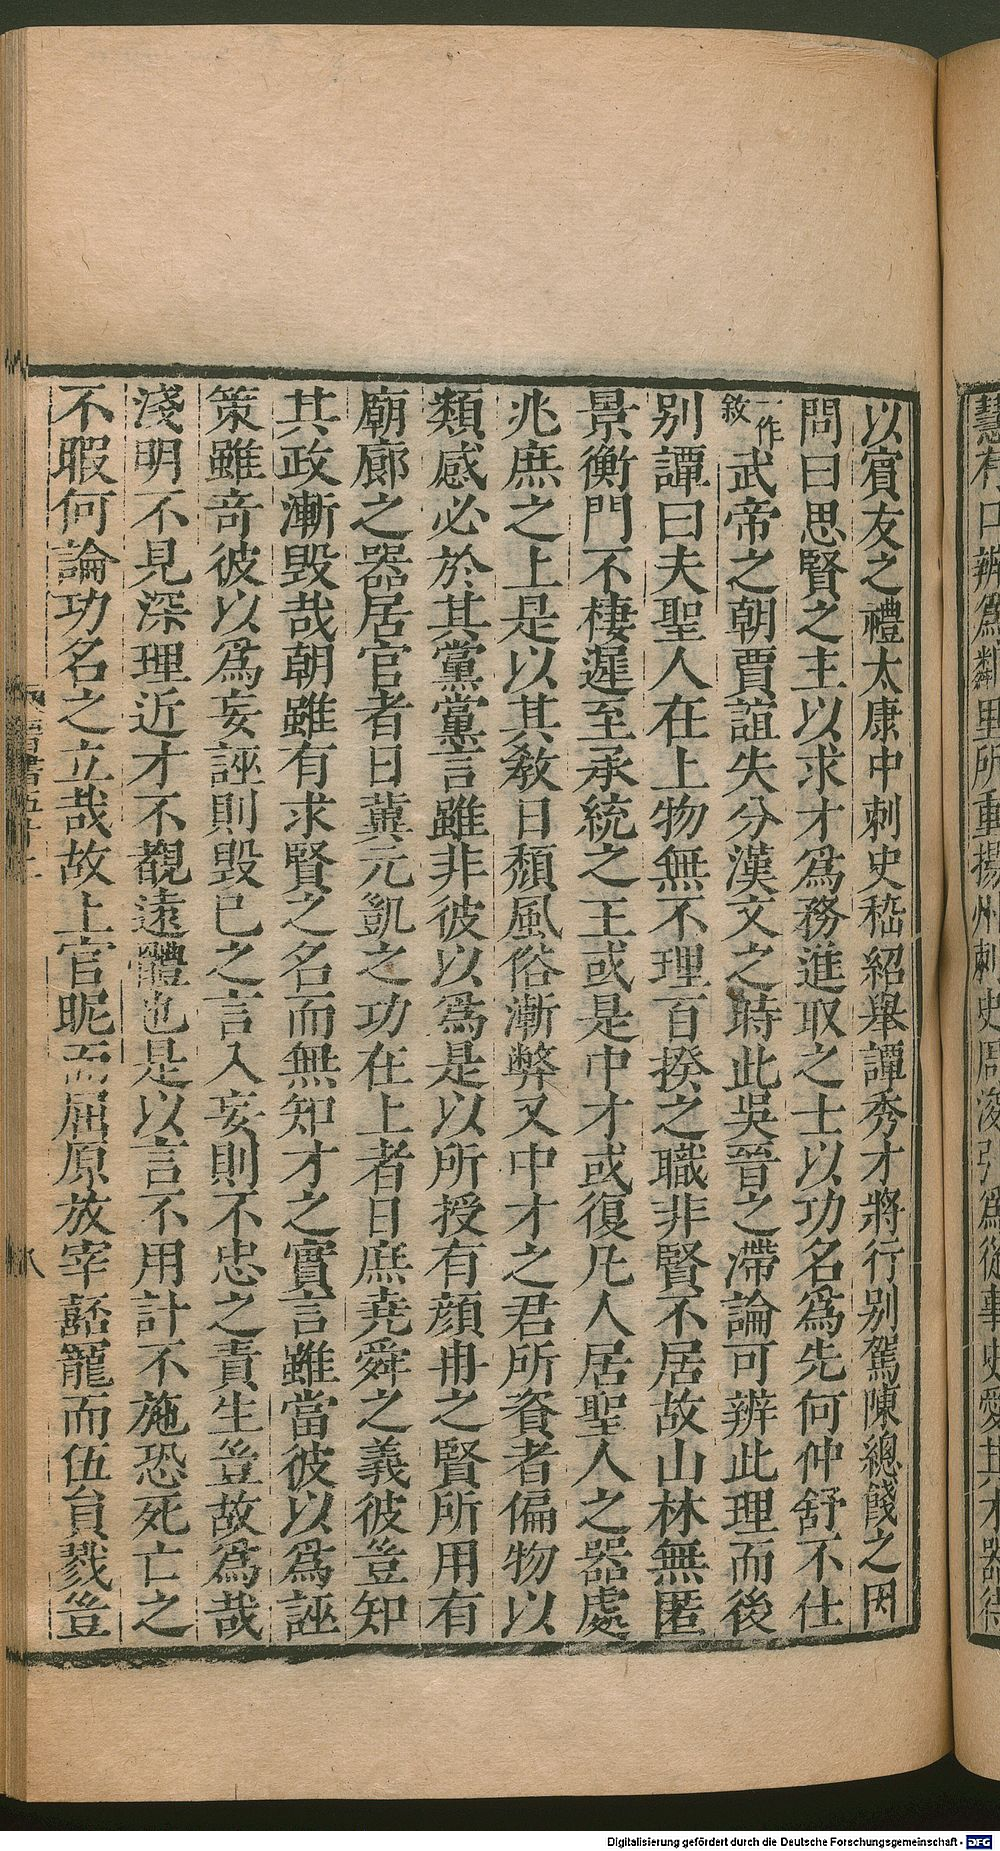 慧有口辨爲鄰里所重揚州刺史周浚引爲從事史愛其才器待
以賓友之禮太康中刺史嵇紹舉譚秀才將行别駕陳總餞之因
問曰思賢之主以求才爲務進取之士以功名爲先何仲舒不仕
一作敘武帝之朝賈誼失分漢文之時此吳晉之滯論可辨此理而後
别譚曰夫聖人在上物無不理百揆之職非賢不居故山林無匿
景衡門不棲遲至承統之王或是中才或復凡人居聖人之器處
兆庶之上是以其敎日頹風俗漸弊又中才之君所資者偏物以
類感必於其黨黨言雖非彼以爲是以所授有顏冉之賢所用有
廟廊之器居官者日冀元凱之功在上者日庶堯舜之義彼豈知
其政漸毁哉朝雖有求賢之名而無知才之實言雖當彼以爲誣
策雖奇彼以爲妄誣則毁己之言入妄則不忠之責生豈故爲哉
淺明不見深理近才不覩遠體也是以言不用計不施恐死亡之
不暇何論功名之立哉故上官昵而屈原放宰嚭寵而伍員戮豈
八
Digitalisierung gefördert durch die Deutsche Forschungsgemeinschaft - DFG